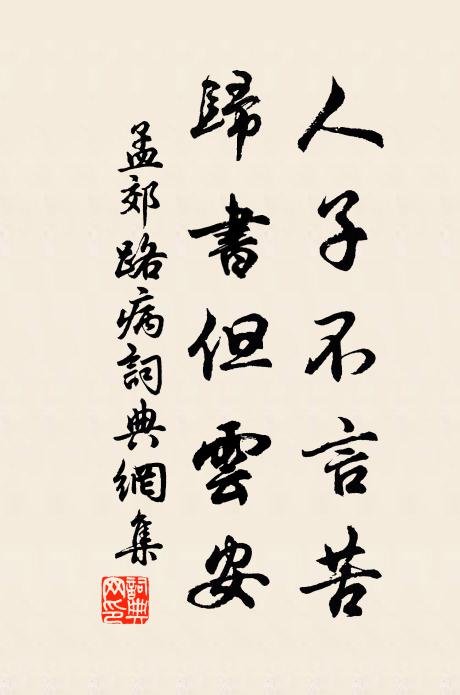 人子不言苦
歸書但雲安
孟郊路病詞典網集
詞典網印